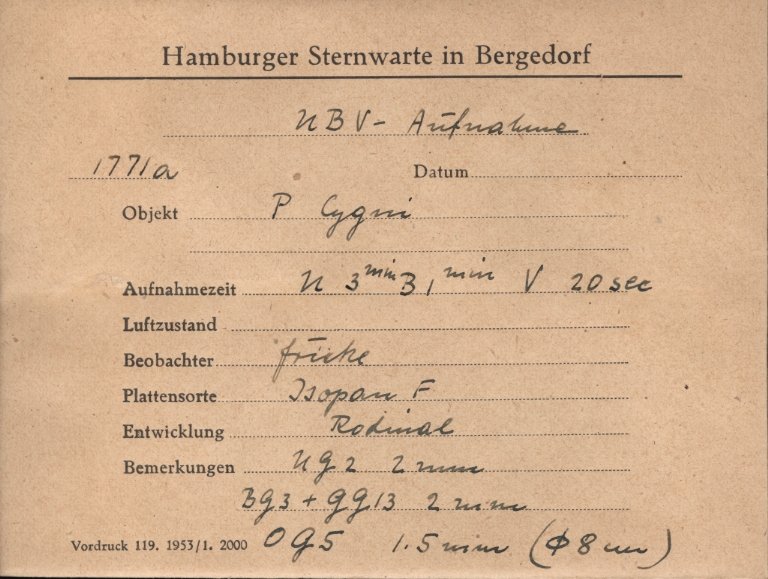 Hamburger Sternwarte in Bergedorf
UBV - Aufnahme
1771a Datum
Objekt P Cygni
Aufnahmezeit U 3 min B 1 min V 20 sec
Luftzustand
Beobachter
Plattensorte Isopan F
Entwicklung Rodinal
Bemerkungen UG2 2 mm
BG3 + GG13 2 mm
Vordruck 119. 1953/1. 2000 OG5 1.5 mm (Φ 8 cm)